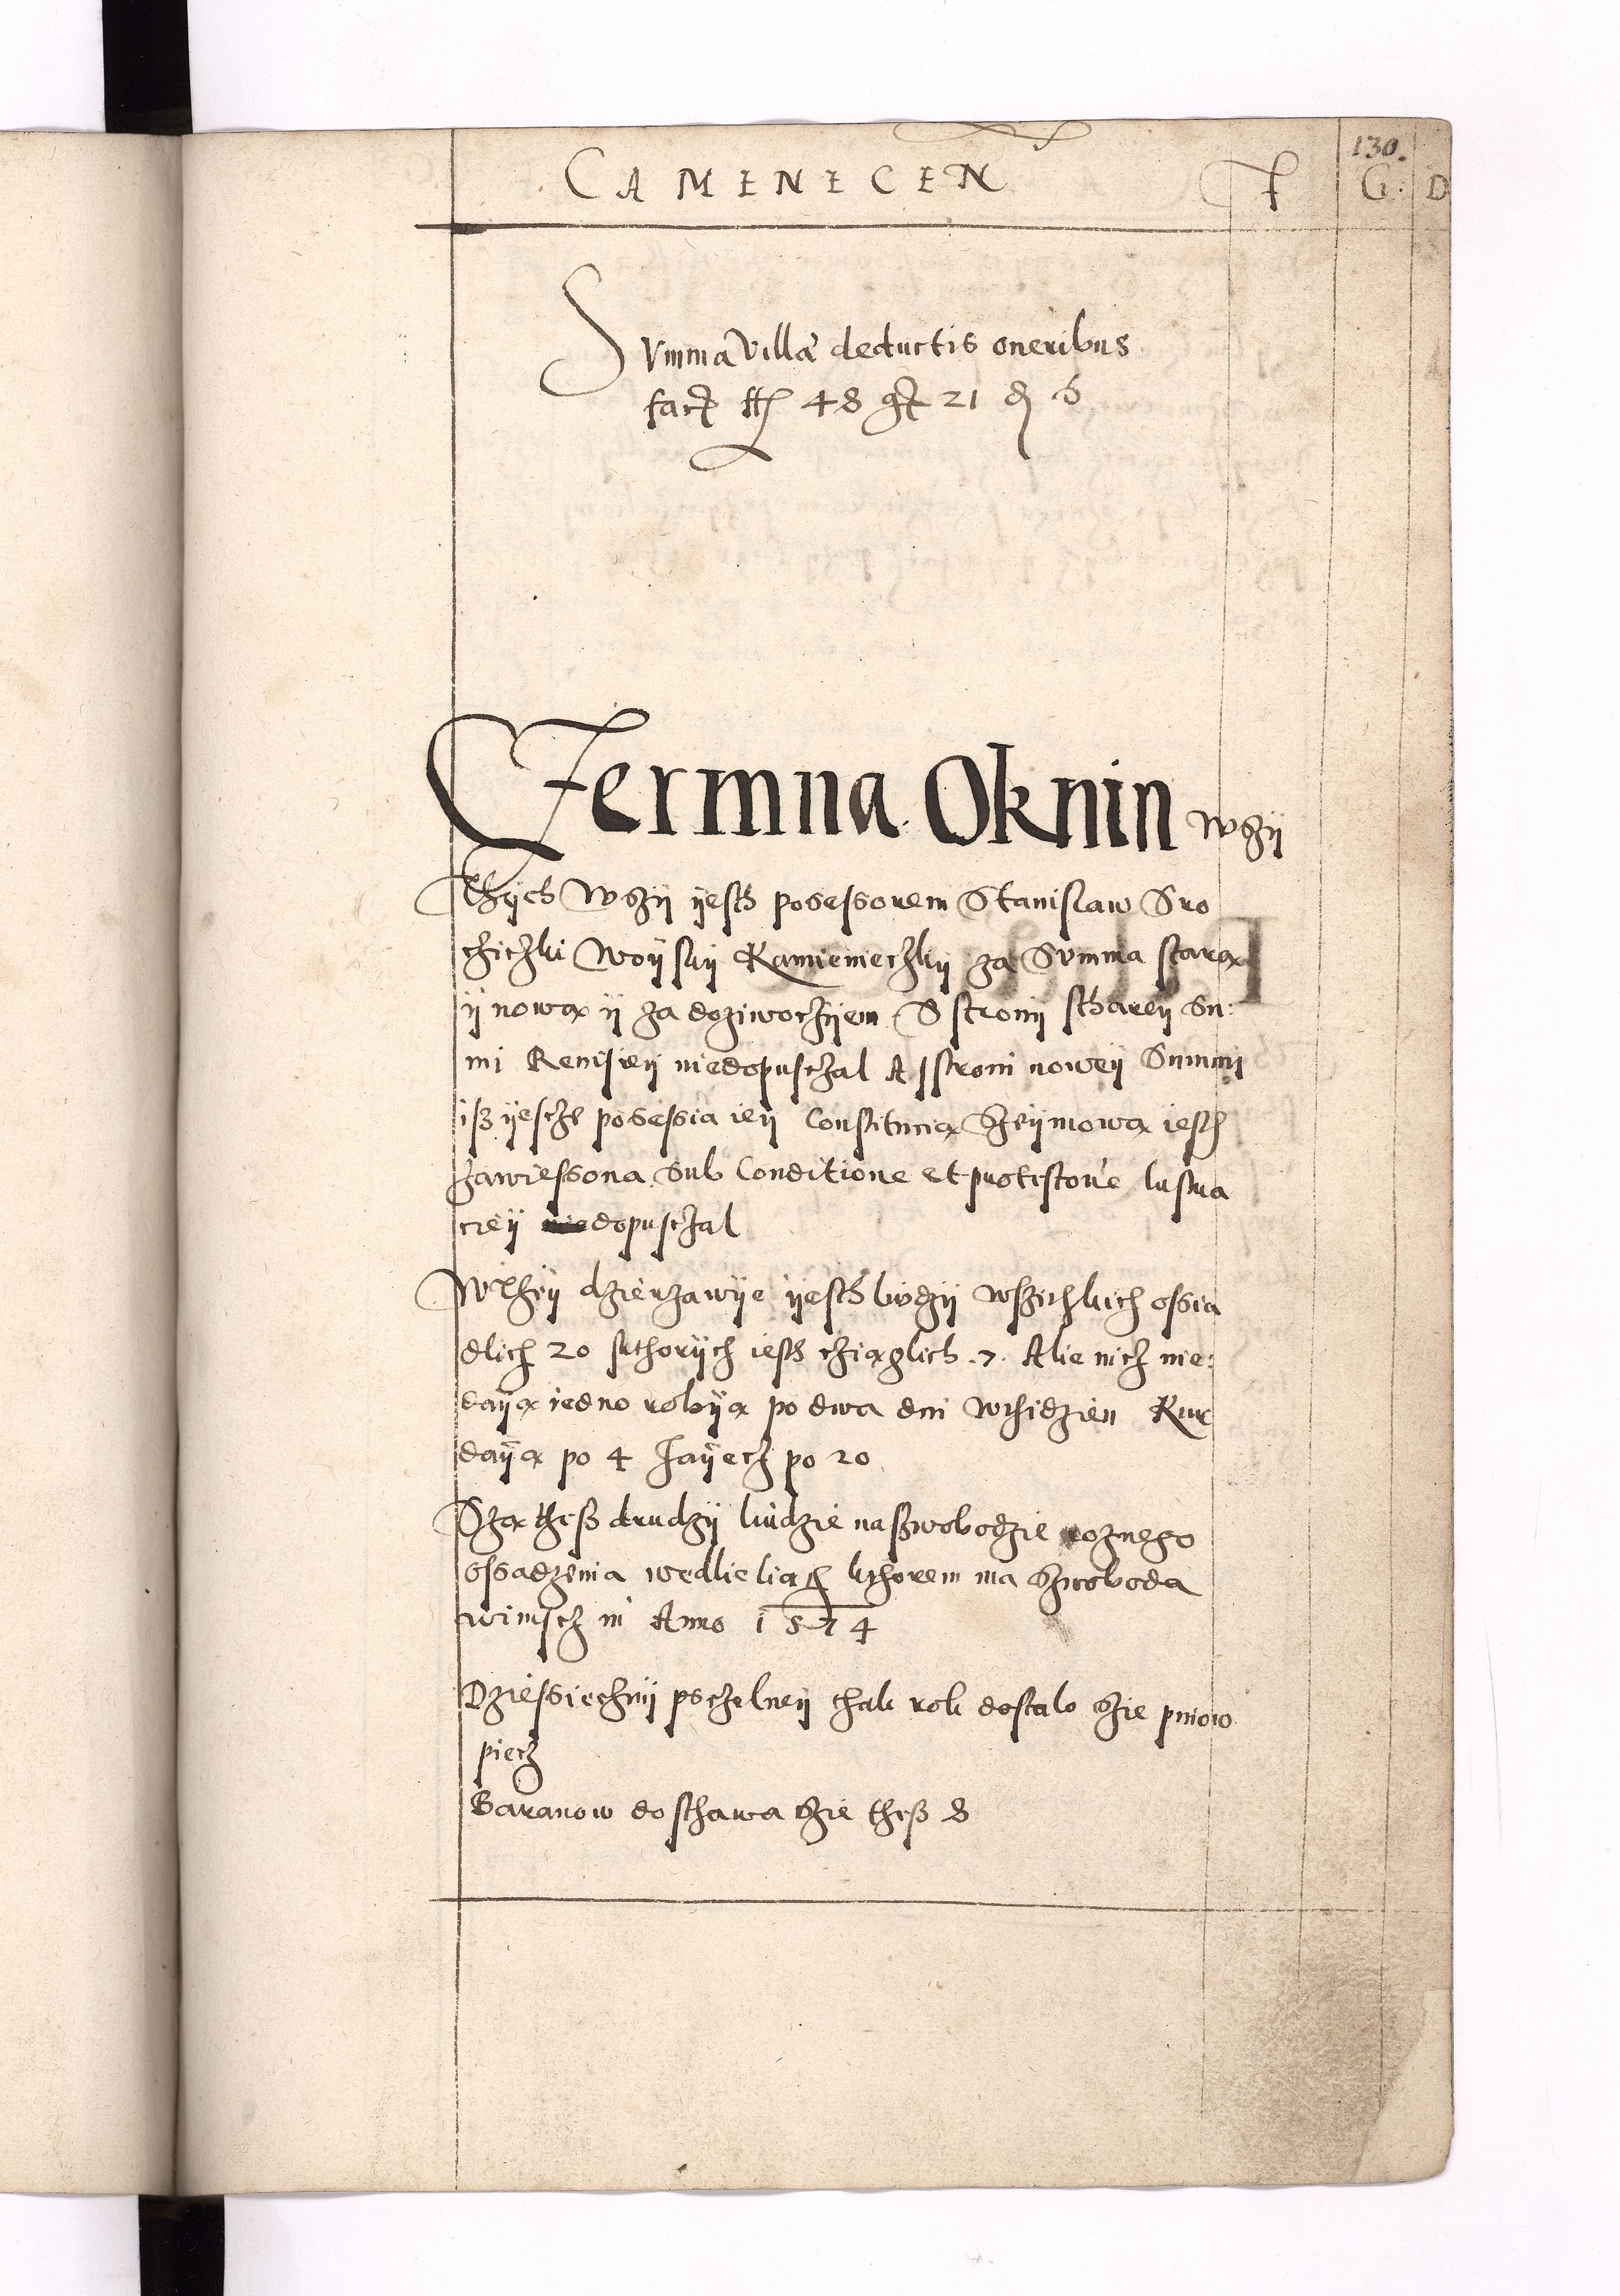 130.
CAMENECEN F G. D
Summa Villae deductis oneribus
facit fl 48 gr 21 d 6
Czermna Oknin wszÿ
Thÿch wszÿ ÿesth possessorem Stanislaw Sro
cziczki Woÿski Kamienieczkÿ za Summa stara
ÿ nowa ÿ za doziwoczÿem S stronÿ stharеÿ Su:
mi Revisieÿ niedopusczal A sstroni noweÿ Summÿ
isz ÿescze possessia ieÿ Constitucia Szeÿmowa iest
zawiessona sub Conditione et protestone lustra
cieÿ dopusczal
WTheÿ dzierzawÿe ÿesth ludzÿ wszitzkich ossia
dlich 20 kthorÿch iesth cziaglich .7. Alie nicz nie:
daÿa iedno robÿa po dwa dni wthidzien Kur
daÿa po 4 Jaÿecz po 20
Sza thesz drudzÿ liudzie naszwobodzie roznego
ossadzenia wedlie liat kthorem ma szwoboda
winiscz in Anno 1574
Dziessiecznÿ psczelneÿ thak rok dostalo szie pniow
piecz
Baranow dosthawa szie thesz 8